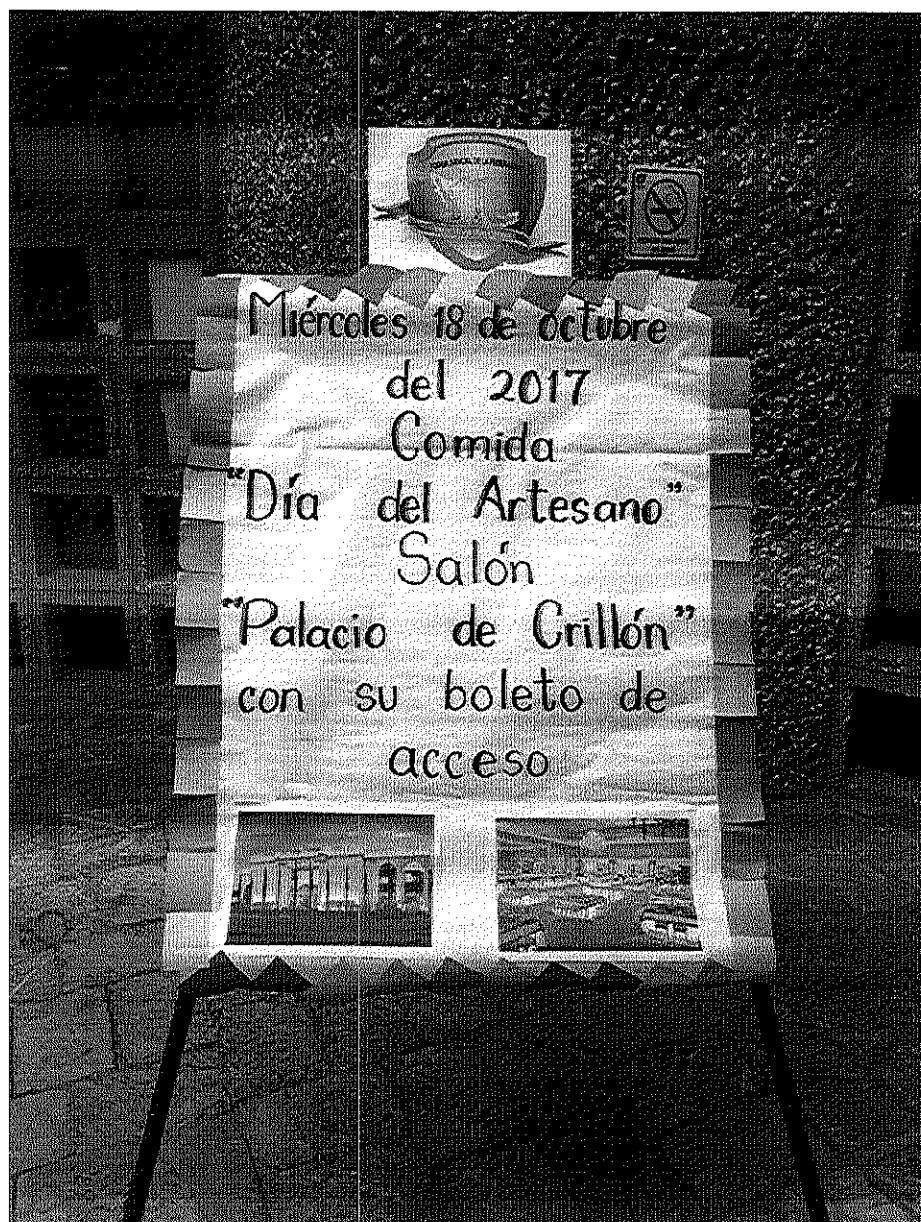 Miércoles 18 de octubre
del 2017
Comida
"Día del Artesano"
Salón
"Palacio de Crillón"
con su boleto de
acceso